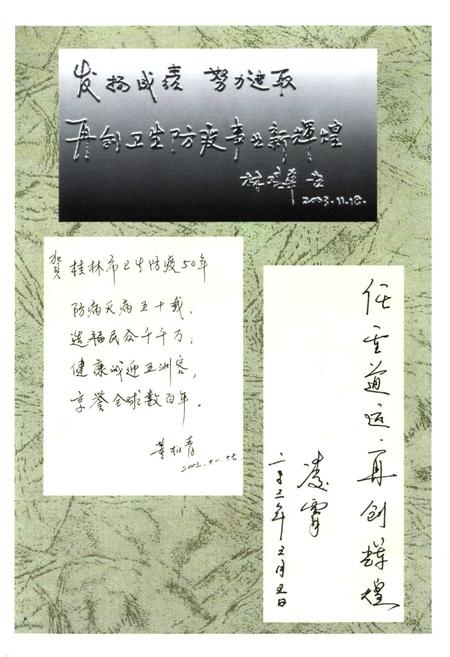 发扬成绩 努力进取
再创卫生防疫事业新辉煌
2003.11.18.
贺
桂林市卫生防疫50年
防病灭病五十载,
造福民众千千万,
健康城迎五洲客,
享誉全球数百年。
任重道远·再创辉煌
凌霄
二〇〇三年五月五日